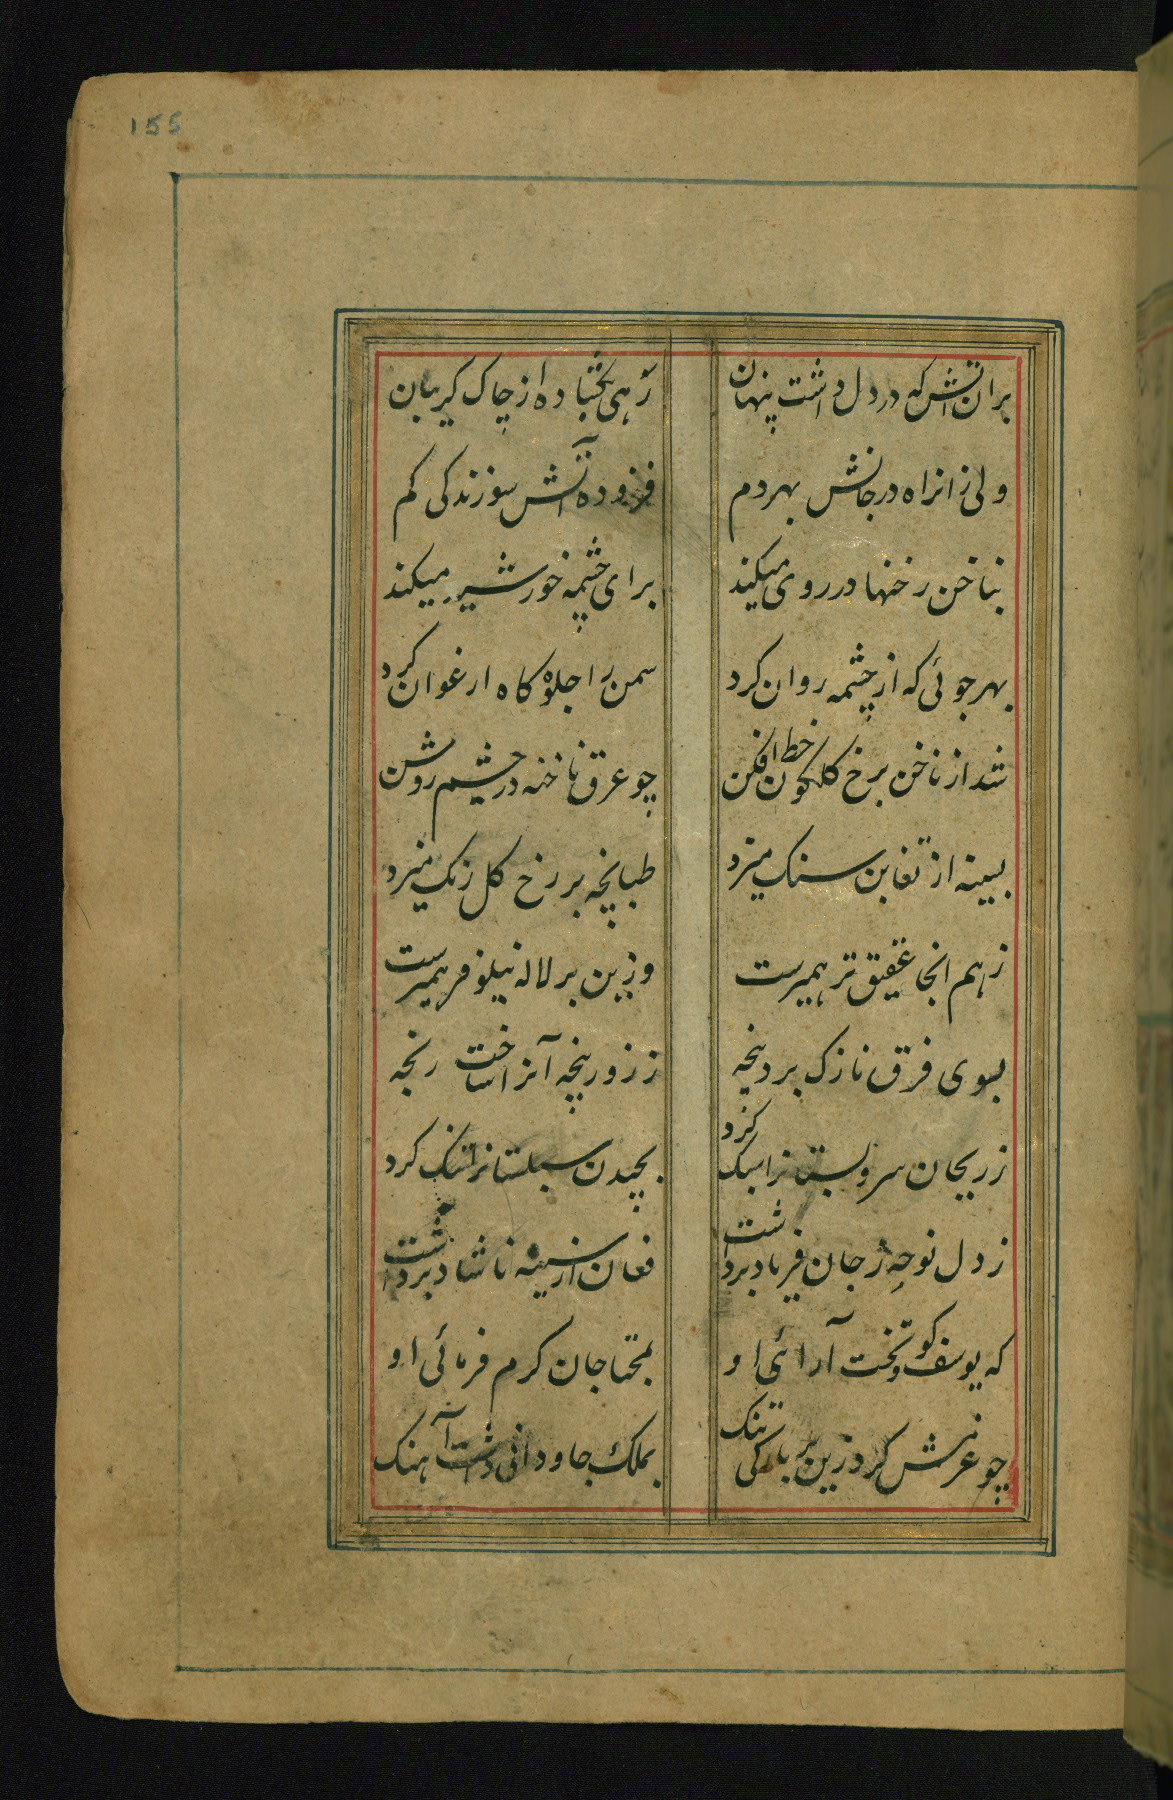 155
بران آتش که در دل داشت پنهان رهی بگشاده از چاک گریبان
ولی زانراه در جانش بهر دم فزوده آتش سوزندگی کم
بناخن رخنها در روی میکند برای چشمه خورشید میکند
بهر جوئی که از چشمه روان کرد سمن را جلوه کاه ارغوان کرد
شد از ناخن برخ کلکون خط افکن چو عرق ناخنه در چشم روشن
بسینه از تغابن سنک میزد طبانچه بر رخ کل رنک میزد
زهم انجا عقیق تر همیرست وزین بر لاله نیلوفر همیرست
بسوی فرق نازک برد پنجه ز زور پنجه آنرا ساخت رنجه
ز ریحان سرو بستانرا سبک کرد بچیدن سنبلستانرا تنک کرد
ز دل نوحه ز جان فریاد برداشت فغان از سینه ناشاد برداشت
که یوسف کو و تخت آرائی او بمحتاجان کرم فرمائی او
چو عزمش کرد زین بر بارکی تنک بملک جاودانی داشت آهنک